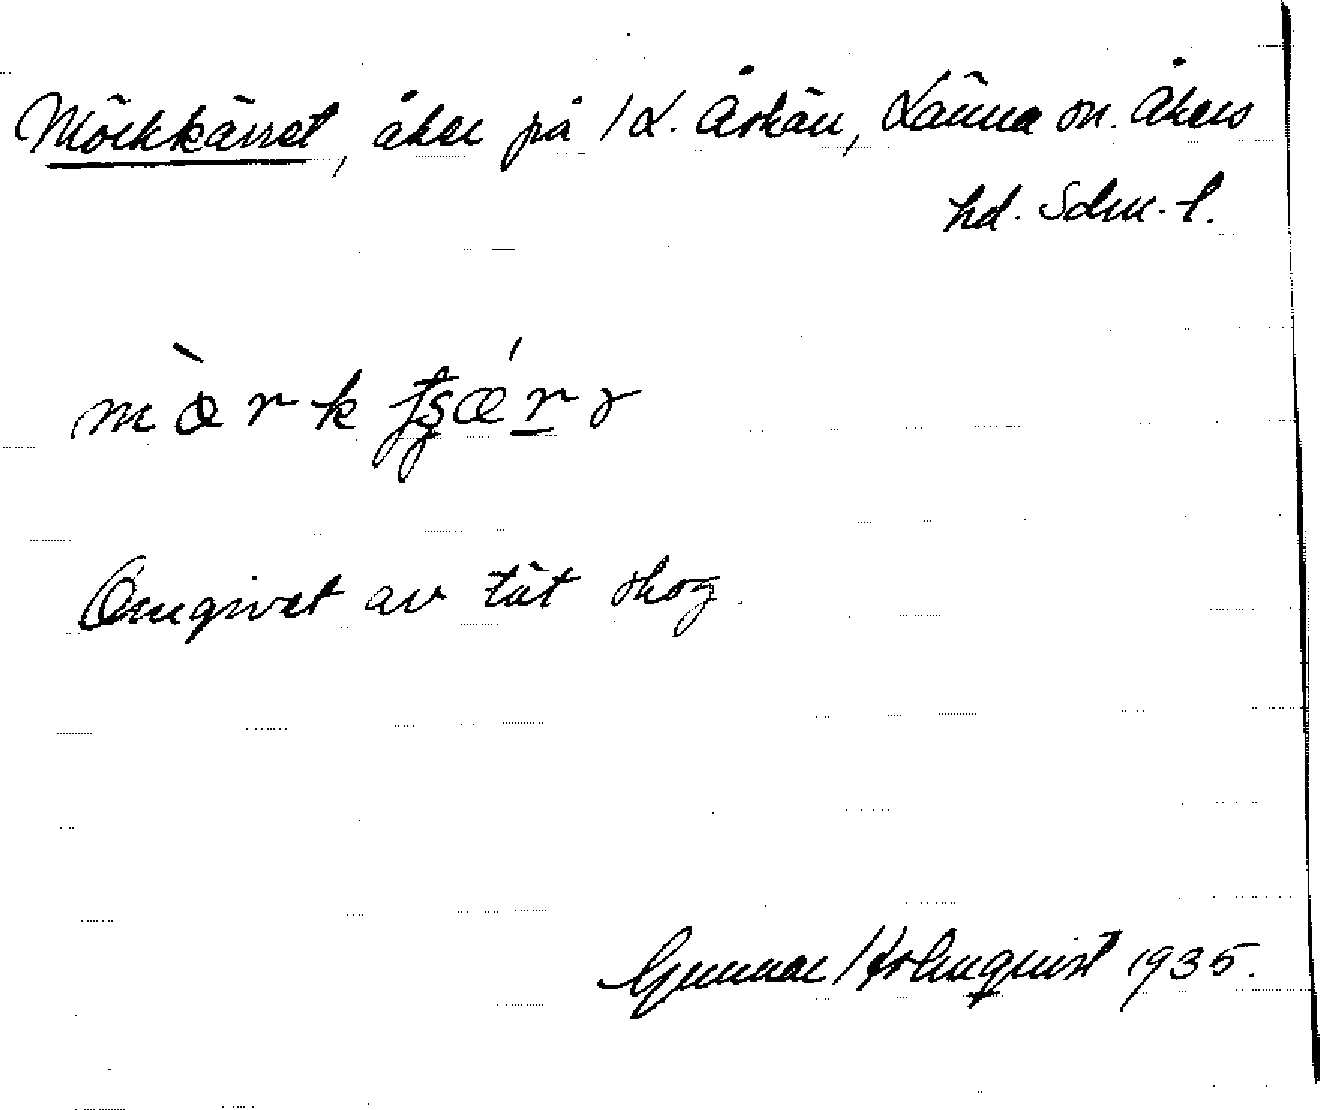 Mörkkärret, åker på L. Åskän, Länna sn. Åkers
hd. Sdm. l.
m ö̀ r k ʈʂ ǽ r ɤ
Omgivet av tät skog.
Gunnar Holmquist 1935.